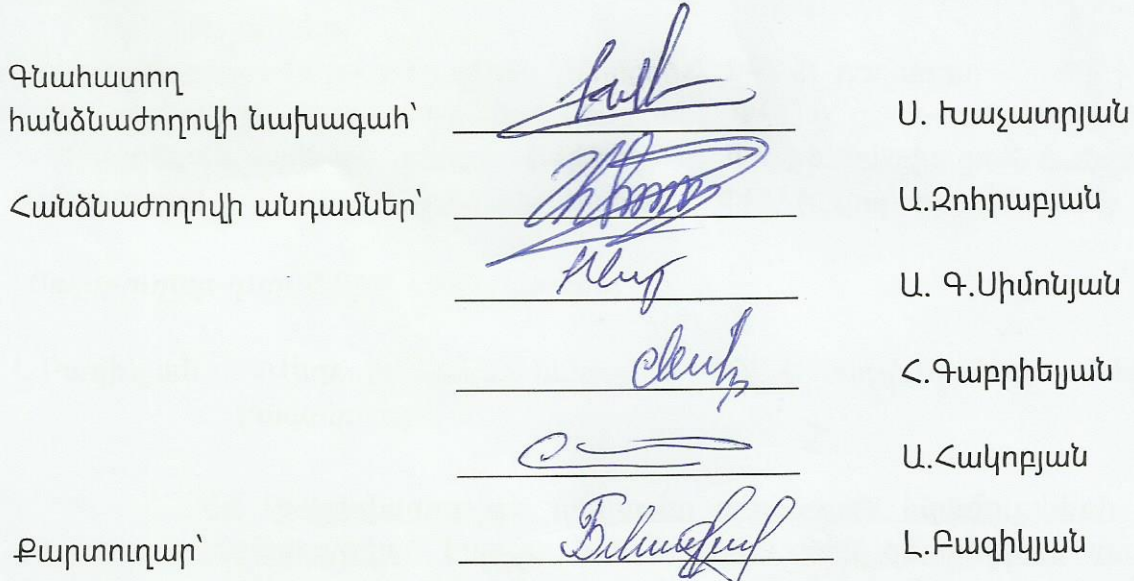 Գնահատող
հանձնաժողովի նախագահ՝ Ս. Խաչատրյան
Հանձնաժողովի անդամներ՝ Ա.Զոհրաբյան
Ա. Գ.Սիմոնյան
Հ.Գաբրիելյան
Ա.Հակոբյան
Քարտուղար՝ Լ.Բազիկյան